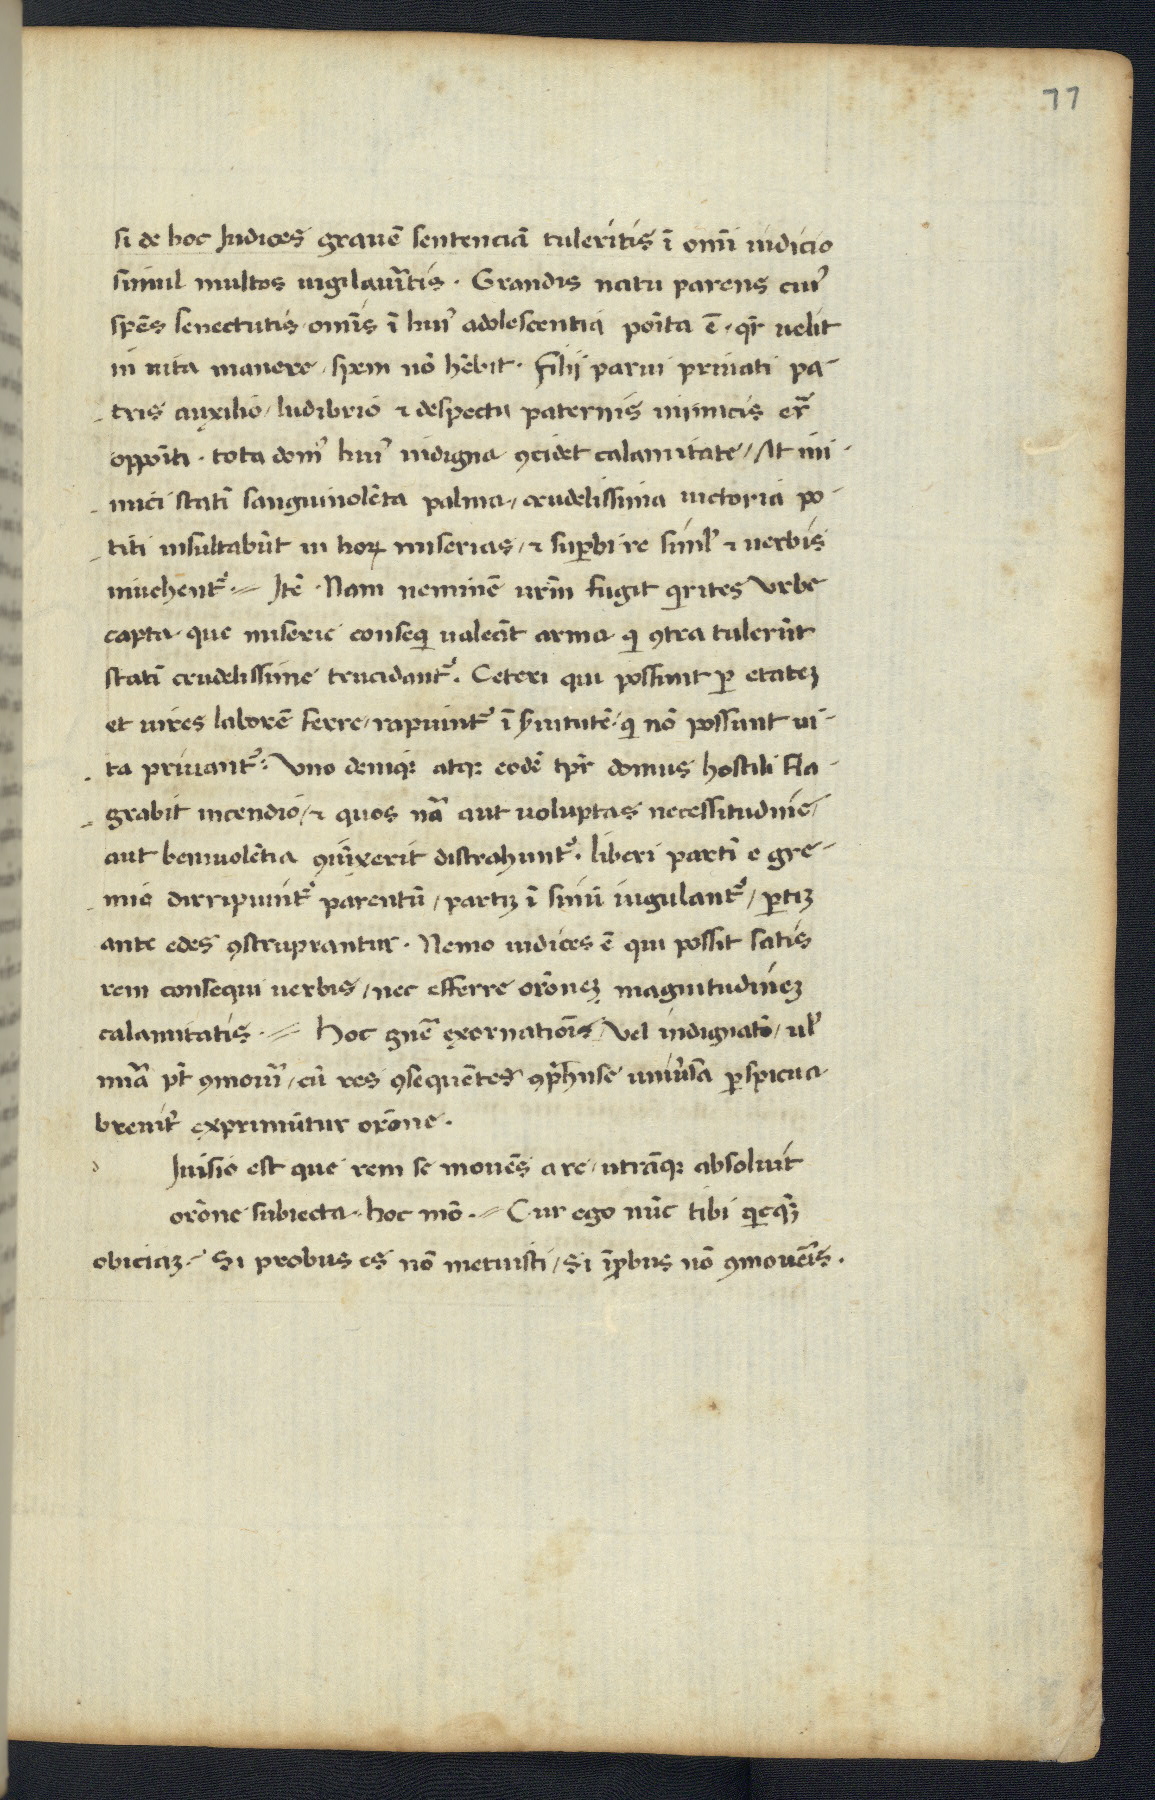 77
si de hoc Iudices grauē sentenciā tuleritis ī om̄i iudicio
simul multos iugilauītis . Grandis natu parens cui᷒
spēs senectutis om̄is ī hui᷒ adolescentia poīta ē . qr̄ uelit
in uita manere / spem nō hēbit . filij parui priuati pa-
tris auxilio / ludibrio ⁊ despectu paternis inimicis er̄
oppoīti . tota dom᷒ hui᷒ indigna ꝯcidet calamitate / At ini-
mici statī sanguinolēta palma / crudelissima uictoria po-
titi insultabūt in hoꝝ miserias / ⁊ suꝑbire simł ⁊ uerbis
inuehent᷑ .= Itē . Nam neminē urm̄ fugit qirites Vrbe
capta que miserie conseqi ualeāt arma qi ꝯtra tulerūt
statī crudelissime trucidant᷑ . Ceteri qui possunt ꝑ etateꝫ
et uires laborē ferre / rapiuint᷑ ī ẛuitutē . qi nō possunt ui-
ta priuant᷑ . Vno deniqꝫ atqꝫ eodē tpr̄ domus hostili fla-
grabit incendio / ⁊ quos nā aut uoluptas necessitudine /
aut beniuolētia ꝯiūxerit distrahunt᷑ . liberi partī e gre-
mio dirripiuint᷑ parentū / partiꝫ ī sinū iugulant᷑ / ꝑtiꝫ
ante edes ꝯstruprantur . Nemo iudices ē qui possit satis
rem consequi uerbis / nec efferre orōneꝫ magnitudineꝫ
calamitatis .= Hoc gnē exornatiōis Vel indignatō / ul᷒
mīa pt̄ ꝯmouī / cū res ꝯsequentes ꝯp̄hnse uniu᷒sa ꝑspicua
breuit᷑ exprimūtur orōne .
Iuisio est que rem se mouēs a re / utrāqꝫ absoluit
orōne subiecta . hoc mō .= Cur ego nūc tibi qicqꝫ
obiciaꝫ .= Si probus es nō metuisti / Si īprobus nō ꝯmouēis .